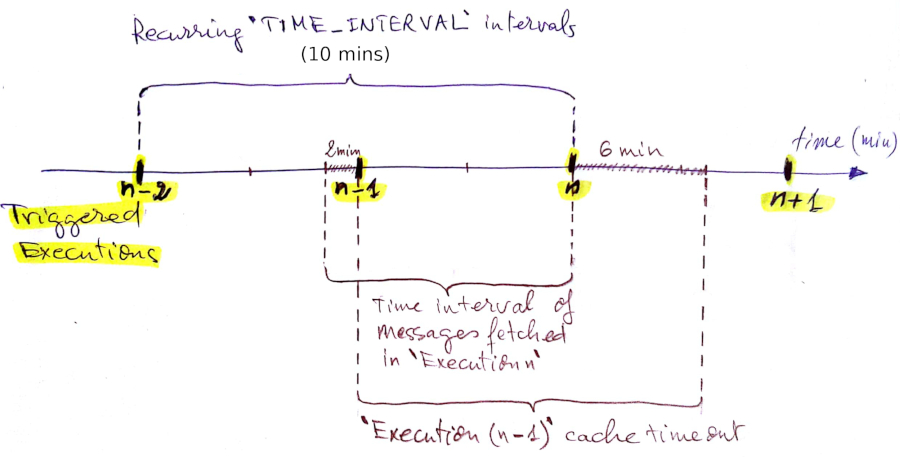 Recurring 'TIME_INTERVAL' intervals
(10 mins)
time (min)
2min
6 min
n-2
n-1
n
n+1
Triggered
Executions
Time interval of
messages fetched
in 'Execution n'
'Execution (n-1)' cache timeout